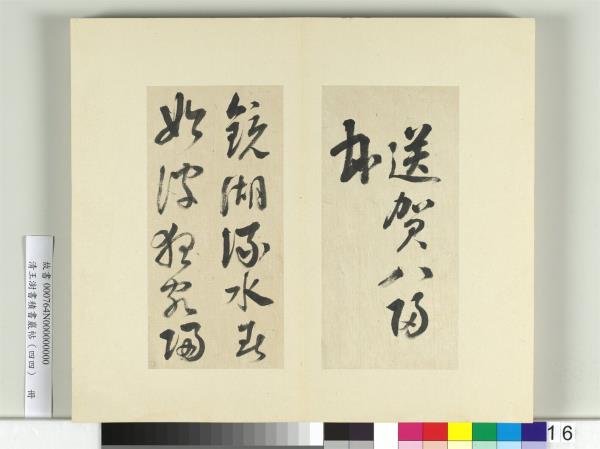 送賀八歸
鏡湖流水春
始波狂客歸
故書 000764N000000000
清王澍書積書巖帖（四四） 冊
16